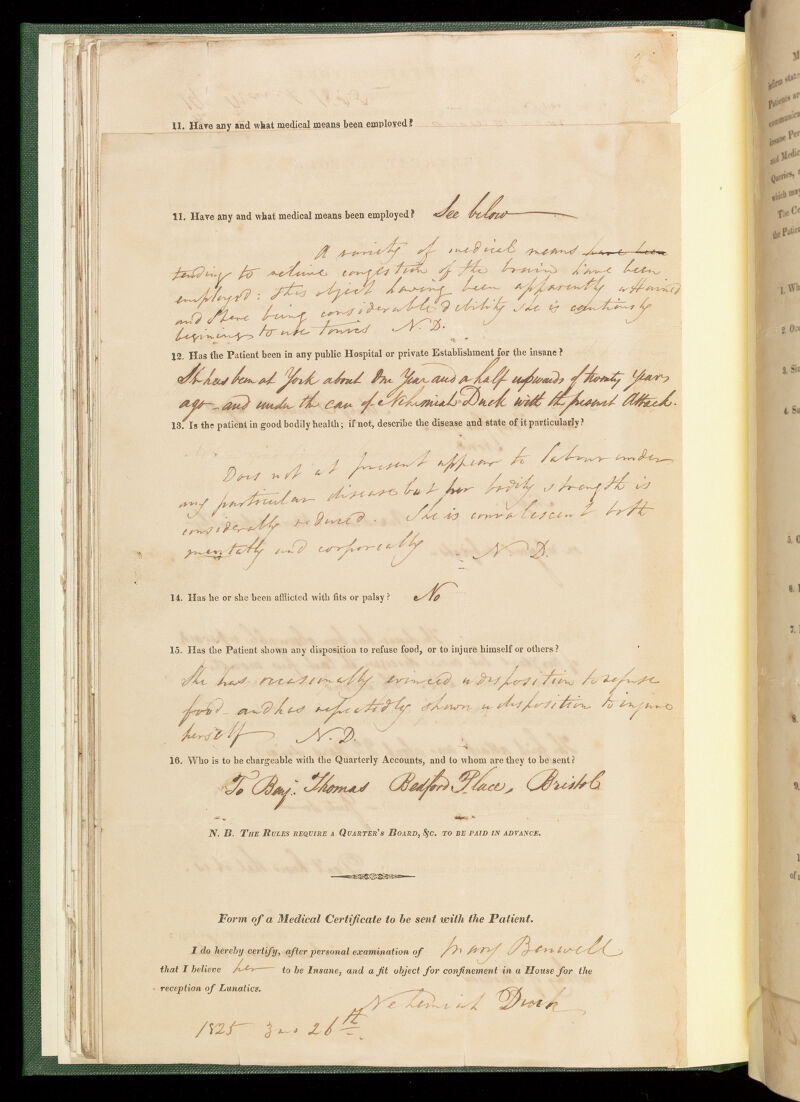 11. Have any and what medical means been employed?
11. Have any and what medical means been employed? See below
A variety of medical means have been
tending to relieve congestion of the brain have been
employed: this object having been apparently attained
and there being considerable debility she is cautiously
beginning to use tonics N. D.
12. Has the Patient been in any public Hospital or private Establishment for the insane?
has been at York about One Year and a half upwards of twenty Years
ago - and under the care of Nehemiah Duck with the present Attack.
13. Is the patient in good bodily health; if not, describe the disease and state of it particularly?
Does not at present appear to labour under
any particular disease but her bodily strength is
considerably reduced. She is convalescent both
mentally and corporeally N. D.
14. Has he or she been afflicted with fits or palsy? No
15. Has the Patient shown any disposition to refuse food, or to injure himself or others?
She has occasionally evinced a disposition to refuse
food and has repeatedly shown a disposition to injure
herself N. D.
16. Who is to be chargeable with the Quarterly Accounts, and to whom are they to be sent?
To Benj: Thomas Bedford Place, Bristol
N. B. The Rules require a Quarter's Board, &c. to be paid in advance.
Form of a Medical Certificate to be sent with the Patient.
I do hereby certify, after personal examination of Mary Benwell
that I believe her to be Insane, and a fit object for confinement in a House for the
reception of Lunatics.
Nehemiah Duck
1825 3 mo 26th